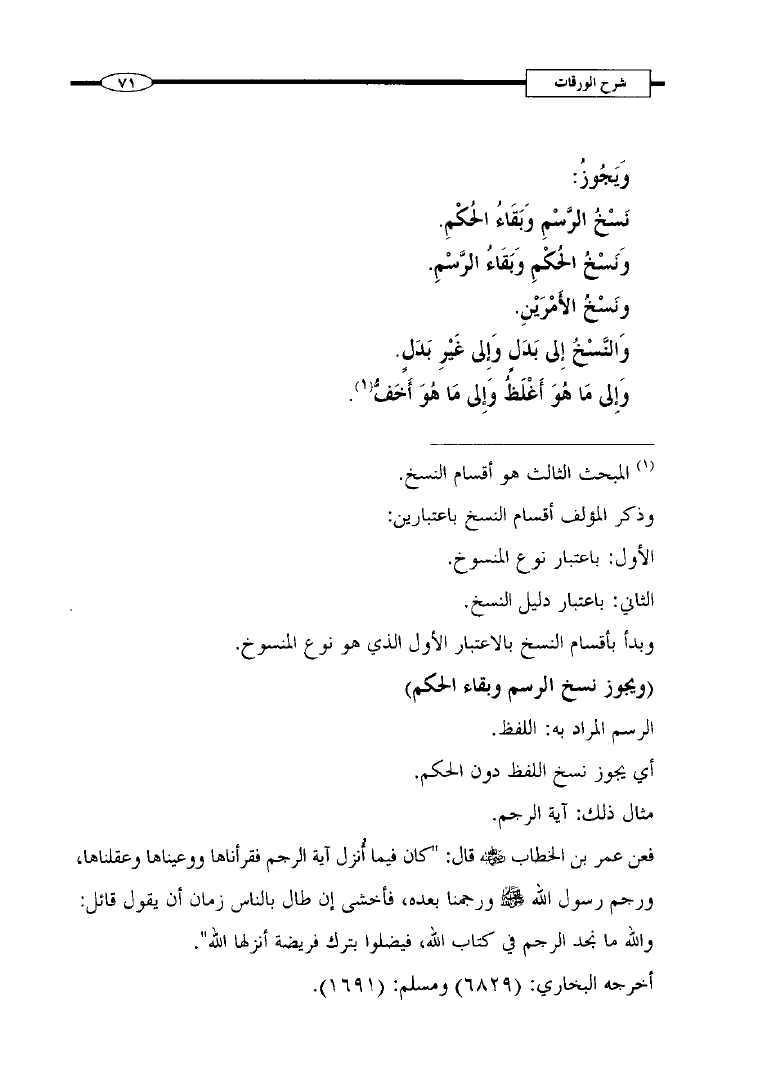 شرح الورقات
٧١
وَيَجُوزُ:
نَسْخُ الرَّسْمِ وَبَقَاءُ الحُكْمِ.
وَنَسْخُ الحُكْمِ وَبَقَاءُ الرَّسْمِ.
ونَسْخُ الأَمْرَيْنِ.
وَالنَّسْخُ إلى بَدَلٍ وَإلى غَيْرِ بَدَلٍ.
وَإلى مَا هُوَ أَغْلَظُ وَإلى مَا هُوَ أَخَفُّ(١).
(١) المبحث الثالث هو أقسام النسخ.
وذكر المؤلف أقسام النسخ باعتبارين:
الأول: باعتبار نوع المنسوخ.
الثاني: باعتبار دليل النسخ.
وبدأ بأقسام النسخ بالاعتبار الأول الذي هو نوع المنسوخ.
(ويجوز نسخ الرسم وبقاء الحكم)
الرسم المراد به: اللفظ.
أي يجوز نسخ اللفظ دون الحكم.
مثال ذلك: آية الرجم.
فعن عمر بن الخطاب ﷺ قال: "كان فيما أُنزل آية الرجم فقرأناها ووعيناها وعقلناها،
ورجم رسول الله ﷺ ورجمنا بعده، فأخشى إن طال بالناس زمان أن يقول قائل:
والله ما نجد الرجم في كتاب الله، فيضلوا بترك فريضة أنزلها الله".
أخرجه البخاري: (٦٨٢٩) ومسلم: (١٦٩١).